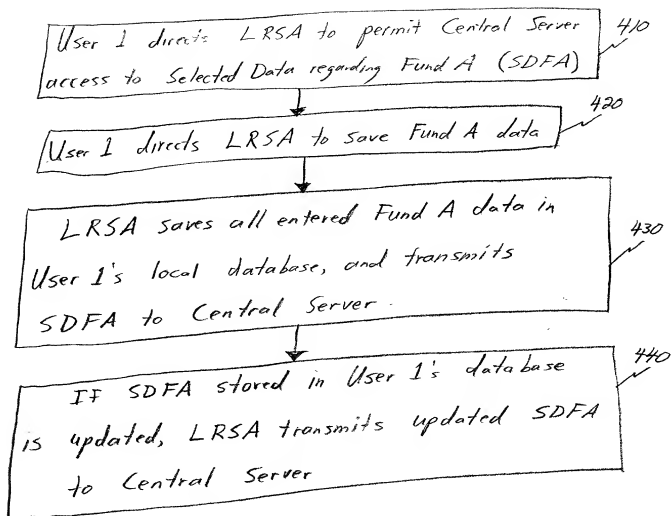 User 1 directs LRSA to permit Central Server
access to Selected Data regarding Fund A (SDFA)
410
User 1 directs LRSA to save Fund A data
420
LRSA saves all entered Fund A data in
User 1's local database, and transmits
SDFA to Central Server.
430
If SDFA stored in User 1's database
is updated, LRSA transmits updated SDFA
to Central Server
440